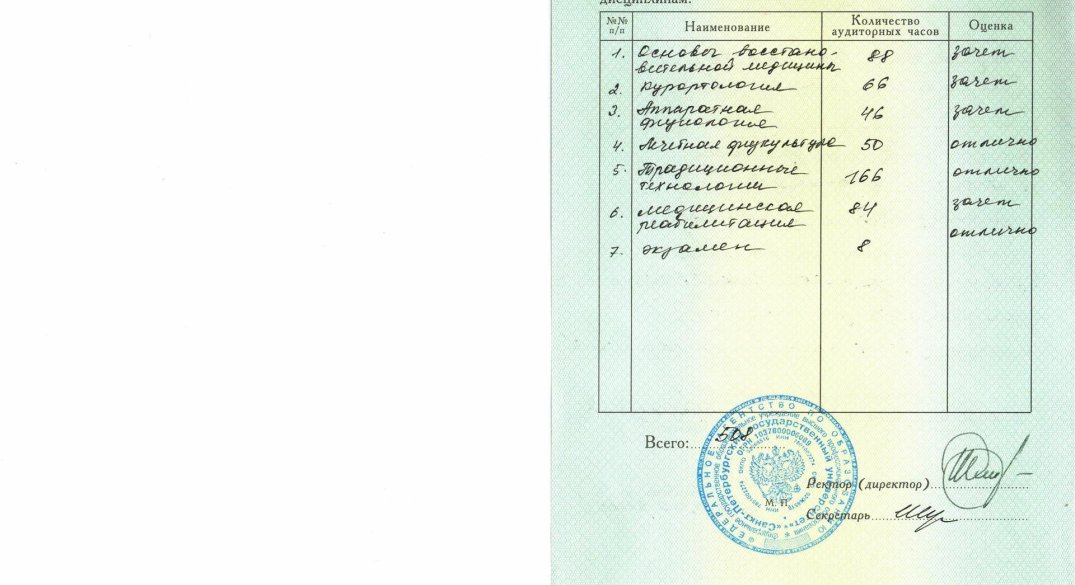 дисциплинам:
№№ п/п Наименование Количество аудиторных часов Оценка
1. Основы восстано- 88 зачет
вительной медицины
2. Курортология 66 зачет
3. Аппаратная 46 зачет
физиология
4. Лечебная физкультура 50 отлично
5. Традиционные 166 отлично
технологии
6. Медицинская 84 зачет
реабилитация
7. экзамен 8 отлично
Всего: 508
Ректор (директор)
М. П.
Секретарь
ФЕДЕРАЛЬНОЕ АГЕНТСТВО ПО ОБРАЗОВАНИЮ
«Санкт-Петербургский государственный университет»